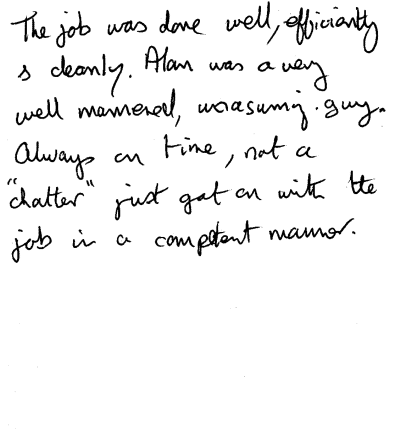 The job was done well, efficiantly
& cleanly. Alan was a very
well mannered, unasuming. guy.
Always on time, not a
"chatter" just got on with the
job in a competent manner.